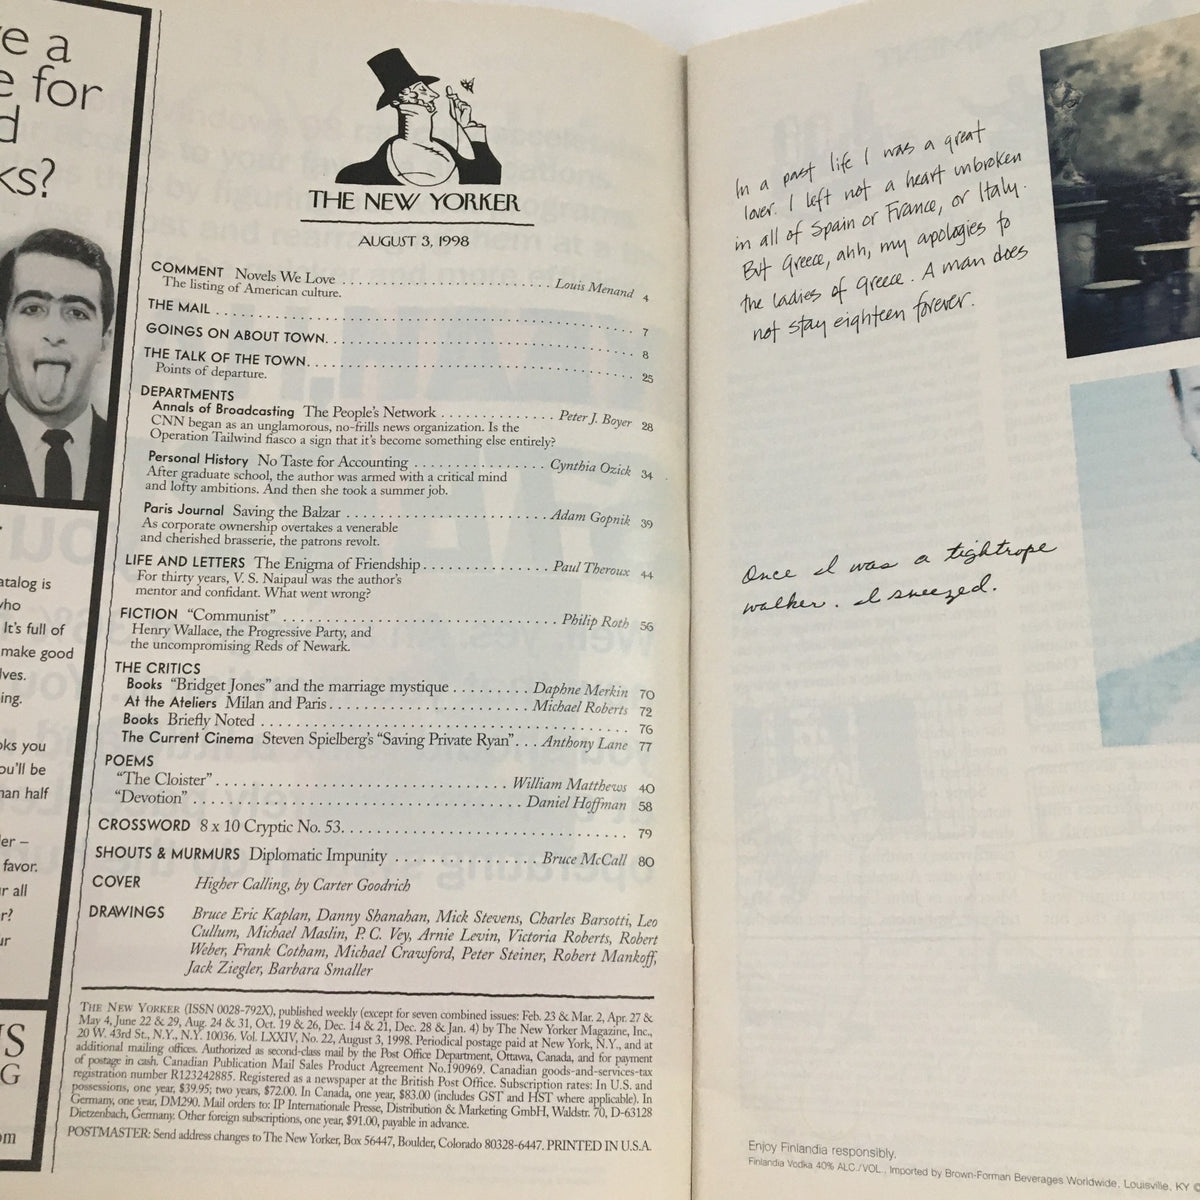 e a
e for
d
ks?
atalog is
who
It's full of
make good
lves.
ing.
oks you
ou'll be
han half
er –
favor.
r all
r?
ur
S
G
om
THE NEW YORKER
AUGUST 3, 1998
COMMENT Novels We Love . . . . . . . . . . . . . . . . . . . . . . . . . . . . . . Louis Menand 4
The listing of American culture.
THE MAIL . . . . . . . . . . . . . . . . . . . . . . . . . . . . . . . . . . . . . . . . . . . . . . . . . . . . . 7
GOINGS ON ABOUT TOWN. . . . . . . . . . . . . . . . . . . . . . . . . . . . . . . . . . . . . . . 8
THE TALK OF THE TOWN. . . . . . . . . . . . . . . . . . . . . . . . . . . . . . . . . . . . . . . . 25
Points of departure.
DEPARTMENTS
Annals of Broadcasting The People's Network . . . . . . . . . . . . . . Peter J. Boyer 28
CNN began as an unglamorous, no-frills news organization. Is the
Operation Tailwind fiasco a sign that it's become something else entirely?
Personal History No Taste for Accounting . . . . . . . . . . . . . . . . Cynthia Ozick 34
After graduate school, the author was armed with a critical mind
and lofty ambitions. And then she took a summer job.
Paris Journal Saving the Balzar . . . . . . . . . . . . . . . . . . . . . . . . . Adam Gopnik 39
As corporate ownership overtakes a venerable
and cherished brasserie, the patrons revolt.
LIFE AND LETTERS The Enigma of Friendship. . . . . . . . . . . . . . . Paul Theroux 44
For thirty years, V. S. Naipaul was the author's
mentor and confidant. What went wrong?
FICTION “Communist” . . . . . . . . . . . . . . . . . . . . . . . . . . . . . . . . . Philip Roth 56
Henry Wallace, the Progressive Party, and
the uncompromising Reds of Newark.
THE CRITICS
Books “Bridget Jones” and the marriage mystique . . . . . . . . . Daphne Merkin 70
At the Ateliers Milan and Paris. . . . . . . . . . . . . . . . . . . . . . . . Michael Roberts 72
Books Briefly Noted . . . . . . . . . . . . . . . . . . . . . . . . . . . . . . . . . . . . . . . . . . 76
The Current Cinema Steven Spielberg's “Saving Private Ryan”. . . Anthony Lane 77
POEMS
“The Cloister” . . . . . . . . . . . . . . . . . . . . . . . . . . . . . . . . . . William Matthews 40
“Devotion” . . . . . . . . . . . . . . . . . . . . . . . . . . . . . . . . . . . . . . Daniel Hoffman 58
CROSSWORD 8 x 10 Cryptic No. 53. . . . . . . . . . . . . . . . . . . . . . . . . . . . . . . . 79
SHOUTS & MURMURS Diplomatic Impunity . . . . . . . . . . . . . . . . Bruce McCall 80
COVER Higher Calling, by Carter Goodrich
DRAWINGS Bruce Eric Kaplan, Danny Shanahan, Mick Stevens, Charles Barsotti, Leo
Cullum, Michael Maslin, P. C. Vey, Arnie Levin, Victoria Roberts, Robert
Weber, Frank Cotham, Michael Crawford, Peter Steiner, Robert Mankoff,
Jack Ziegler, Barbara Smaller
THE NEW YORKER (ISSN 0028-792X), published weekly (except for seven combined issues: Feb. 23 & Mar. 2, Apr. 27 &
May 4, June 22 & 29, Aug. 24 & 31, Oct. 19 & 26, Dec. 14 & 21, Dec. 28 & Jan. 4) by The New Yorker Magazine, Inc.,
20 W. 43rd St., N.Y., N.Y. 10036. Vol. LXXIV, No. 22, August 3, 1998. Periodical postage paid at New York, N.Y., and at
additional mailing offices. Authorized as second-class mail by the Post Office Department, Ottawa, Canada, and for payment
of postage in cash. Canadian Publication Mail Sales Product Agreement No.190969. Canadian goods-and-services-tax
registration number R123242885. Registered as a newspaper at the British Post Office. Subscription rates: In U.S. and
possessions, one year, $39.95; two years, $72.00. In Canada, one year, $83.00 (includes GST and HST where applicable). In
Germany, one year, DM290. Mail orders to: IP Internationale Presse, Distribution & Marketing GmbH, Waldstr. 70, D-63128
Dietzenbach, Germany. Other foreign subscriptions, one year, $91.00, payable in advance.
POSTMASTER: Send address changes to The New Yorker, Box 56447, Boulder, Colorado 80328-6447. PRINTED IN U.S.A.
In a past life I was a great
lover. I left not a heart unbroken
in all of Spain or France, or Italy.
But Greece, ahh, my apologies to
the ladies of Greece. A man does
not stay eighteen forever.
Once I was a tightrope
walker. I sneezed.
Enjoy Finlandia responsibly.
Finlandia Vodka 40% ALC./VOL., Imported by Brown-Forman Beverages Worldwide, Louisville, KY ©